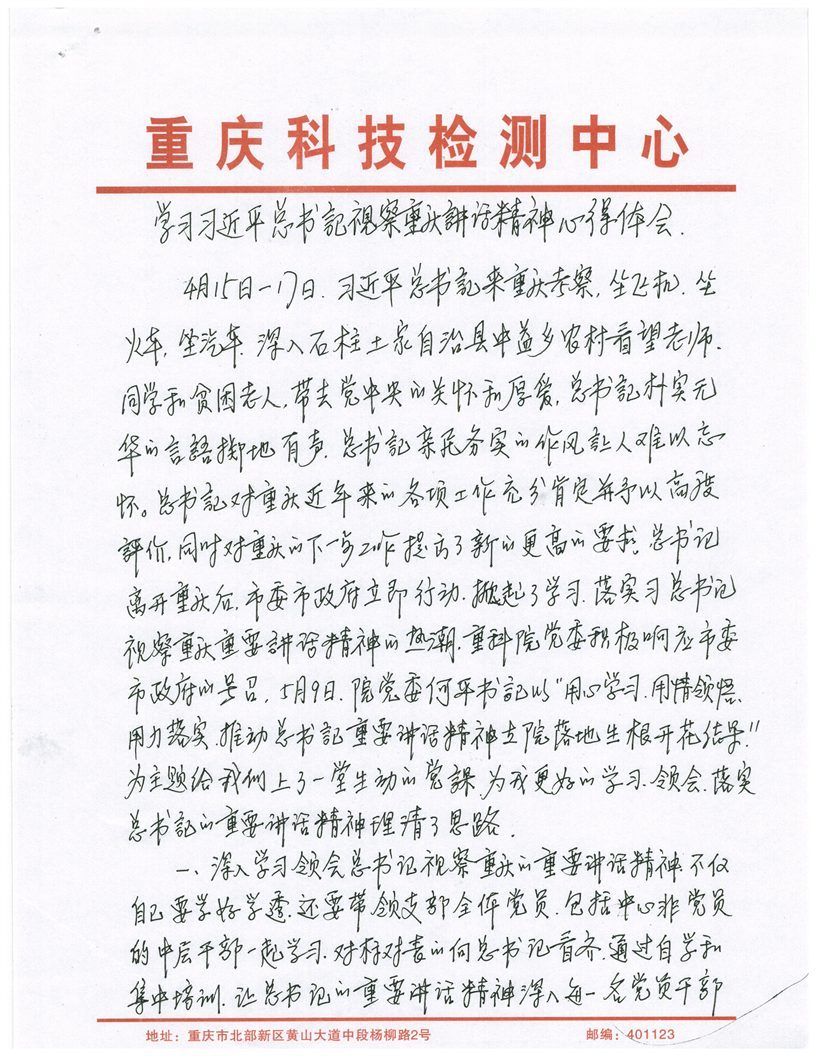 重庆科技检测中心
学习习近平总书記視察重庆講话精神心得体会.
4月15日一17日.习近平总书記来重庆考察,坐飞机.坐
火车,坐汽车.深入石柱土家自治县中益乡农村看望老师.
同学和贫困老人,带去党中央的关怀和厚爱,总书記朴实无
华的言語掷地有声.总书記亲民务实的作风让人难以忘
怀。总书記对重庆近年来的各项工作充分肯定并予以高度
評价,同时对重庆的下一步工作提出了新的更高的要求.总书记
离开重庆后,市委市政府立即行动.掀起了学习.落实习总书记
视察重庆重要講话精神的热潮.重科院党委积极响应市委
市政府的号召,5月9日.院党委何平书記以"用心学习.用情领悟、
用力落实.推动总书記重要讲话精神在院落地生根开花结果."
为主题给我们上了一堂生动的党課.为我更好的学习.领会.落实
总书記的重要讲话精神理清了思路.
一、深入学习领会总书记视察重庆的重要讲话精神不仅
自己要学好学透.还要带领支部全体党员.包括中心非党员
的中层干部一起学习.对标对表的向总书记看齐.通过自学和
集中培训.让总书记的重要讲话精神深入每一名党员干部
地址：重庆市北部新区黄山大道中段杨柳路2号 邮编：401123